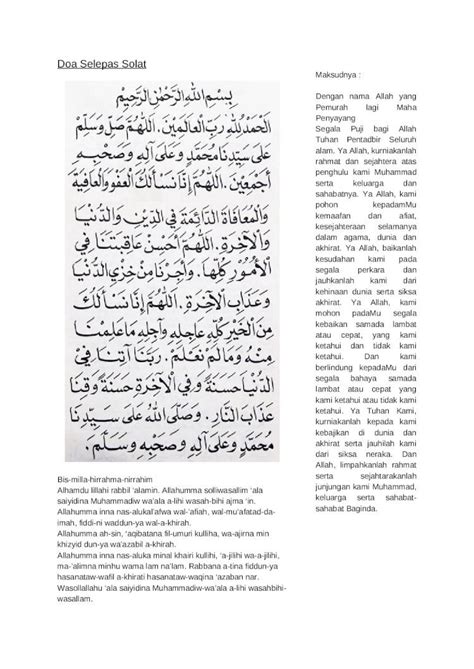 Doa Selepas Solat
بِسْمِ اللهِ الرَّحْمٰنِ الرَّحِيْمِ
اَلْحَمْدُ لِلّٰهِ رَبِّ الْعَالَمِيْنَ. اَللّٰهُمَّ صَلِّ وَسَلِّمْ
عَلَى سَيِّدِنَا مُحَمَّدٍ وَعَلَى آلِهِ وَصَحْبِهِ
أَجْمَعِيْنَ. اَللّٰهُمَّ إِنَّا نَسْأَلُكَ الْعَفْوَ وَالْعَافِيَةَ
وَالْمُعَافَاةَ الدَّائِمَةَ فِي الدِّيْنِ وَالدُّنْيَا
وَالْآخِرَةِ. اَللّٰهُمَّ أَحْسِنْ عَاقِبَتَنَا فِي
الْأُمُوْرِ كُلِّهَا. وَأَجِرْنَا مِنْ خِزْيِ الدُّنْيَا
وَعَذَابِ الْآخِرَةِ. اَللّٰهُمَّ إِنَّا نَسْأَلُكَ
مِنَ الْخَيْرِ كُلِّهِ عَاجِلِهِ وَآجِلِهِ مَا عَلِمْنَا
مِنْهُ وَمَا لَمْ نَعْلَمْ. رَبَّنَا آتِنَا فِي
الدُّنْيَا حَسَنَةً وَفِي الْآخِرَةِ حَسَنَةً وَقِنَا
عَذَابَ النَّارِ. وَصَلَّى اللهُ عَلَى سَيِّدِنَا
مُحَمَّدٍ وَعَلَى آلِهِ وَصَحْبِهِ وَسَلَّمَ.
Bis-milla-hirrahma-nirrahim
Alhamdu lillahi rabbil 'alamin. Allahumma solliwasallim 'ala
saiyidina Muhammadiw wa'ala a-lihi wasah-bihi ajma 'in.
Allahumma inna nas-alukal'afwa wal-'afiah, wal-mu'afatad-da-
imah, fiddi-ni waddun-ya wal-a-khirah.
Allahumma ah-sin, 'aqibatana fil-umuri kulliha, wa-ajirna min
khizyid dun-ya wa'azabil a-khirah.
Allahumma inna nas-aluka minal khairi kullihi, 'a-jilihi wa-a-jilihi,
ma-'alimna minhu wama lam na'lam. Rabbana a-tina fiddun-ya
hasanataw-wafil a-khirati hasanataw-waqina 'azaban nar.
Wasollallahu 'ala saiyidina Muhammadiw-wa'ala a-lihi wasahbihi-
wasallam.
Maksudnya :
Dengan nama Allah yang
Pemurah lagi Maha
Penyayang
Segala Puji bagi Allah
Tuhan Pentadbir Seluruh
alam. Ya Allah, kurniakanlah
rahmat dan sejahtera atas
penghulu kami Muhammad
serta keluarga dan
sahabatnya. Ya Allah, kami
pohon kepadamMu
kemaafan dan afiat,
kesejahteraan selamanya
dalam agama, dunia dan
akhirat. Ya Allah, baikanlah
kesudahan kami pada
segala perkara dan
jauhkanlah kami dari
kehinaan dunia serta siksa
akhirat. Ya Allah, kami
mohon padaMu segala
kebaikan samada lambat
atau cepat, yang kami
ketahui dan tidak kami
ketahui. Dan kami
berlindung kepadaMu dari
segala bahaya samada
lambat atau cepat yang
kami ketahui atau tidak kami
ketahui. Ya Tuhan Kami,
kurniakanlah kepada kami
kebajikan di dunia dan
akhirat serta jauhilah kami
dari siksa neraka. Dan
Allah, limpahkanlah rahmat
serta sejahtarakanlah
junjungan kami Muhammad,
keluarga serta sahabat-
sahabat Baginda.